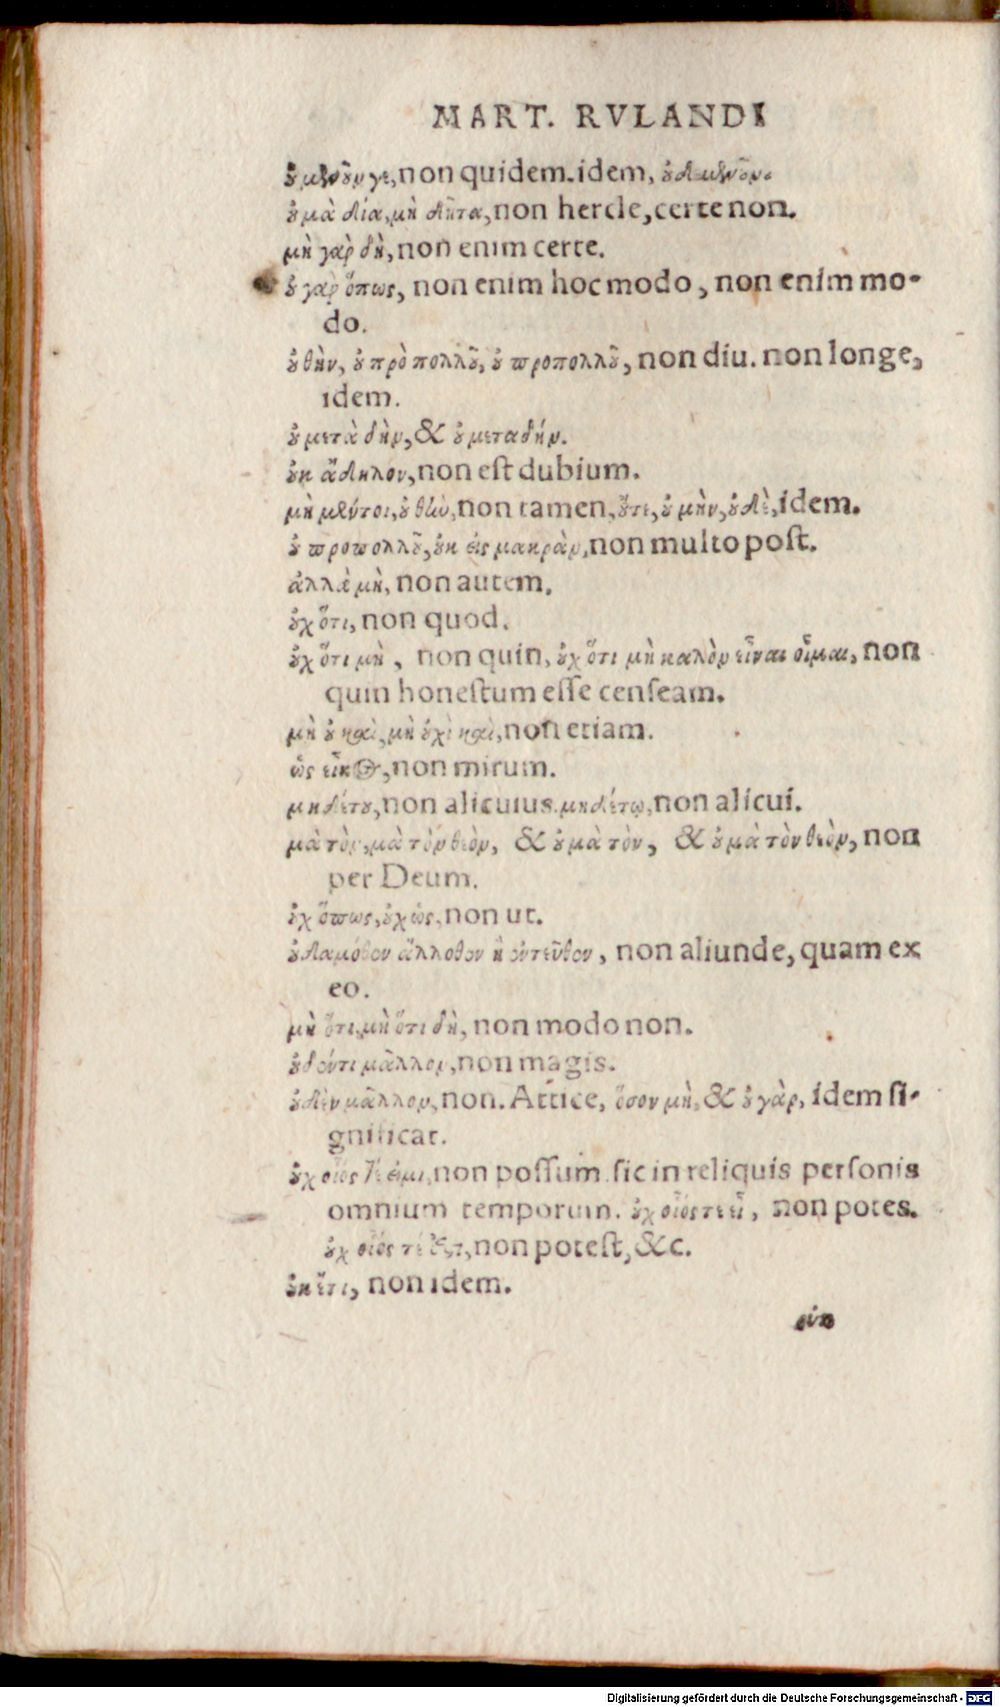 MART. RVLANDI
οὐ μὲν οὖν γε, non quidem. idem, οὐδὲ μὲν οὖν.
οὐ μὰ δία, μὴ δῆτα, non hercle, certe non.
μὴ γὰρ δὴ, non enim certe.
οὐ γὰρ ὅπως, non enim hoc modo, non enim mo-
do.
οὐ θὴν, οὐ πρὸ πολλοῦ, οὐ προπολλοῦ, non diu. non longe,
idem.
οὐ μετὰ δὴν, & οὐ μεταδήν.
οὐκ ἄδηλον, non est dubium.
μὴ μέντοι, οὐ θὴν, non tamen, οὔτε, οὐ μὴν, οὐδὲ, idem.
οὐ προπολλοῦ, οὐκ εἰς μακρὰν, non multo post.
ἀλλὰ μὴ, non autem.
οὐχ ὅτι, non quod.
οὐχ ὅτι μὴ, non quin, οὐχ ὅτι μὴ καλὸν εἶναι οἶμαι, non
quin honestum esse censeam.
μὴ οὐ καὶ, μὴ οὐχὶ καὶ, non etiam.
ὡς εἰκὸς, non mirum.
μηδέτου, non alicuius. μηδέτῳ, non alicui.
μὰ τὸν, μὰ τὸν θεὸν, & οὐ μὰ τὸν, & οὐ μὰ τὸν θεὸν, non
per Deum.
οὐχ ὅπως, οὐχ ὡς, non ut.
οὐδαμόθεν ἄλλοθεν ἢ ἐντεῦθεν, non aliunde, quam ex
eo.
μὴ ὅτι, μὴ ὅτι δὴ, non modo non.
οὐδέντι μᾶλλον, non magis.
οὐδὲν μᾶλλον, non. Attice, ὅσον μὴ, & οὐ γὰρ, idem si-
gnificat.
οὐχ οἷός τέ εἰμι, non possum. sic in reliquis personis
omnium temporum. οὐχ οἷός τε εἶ, non potes.
οὐχ οἷός τέ ἐστι, non potest, &c.
οὐκ ἔτι, non idem.
Digitalisierung gefördert durch die Deutsche Forschungsgemeinschaft - DFG